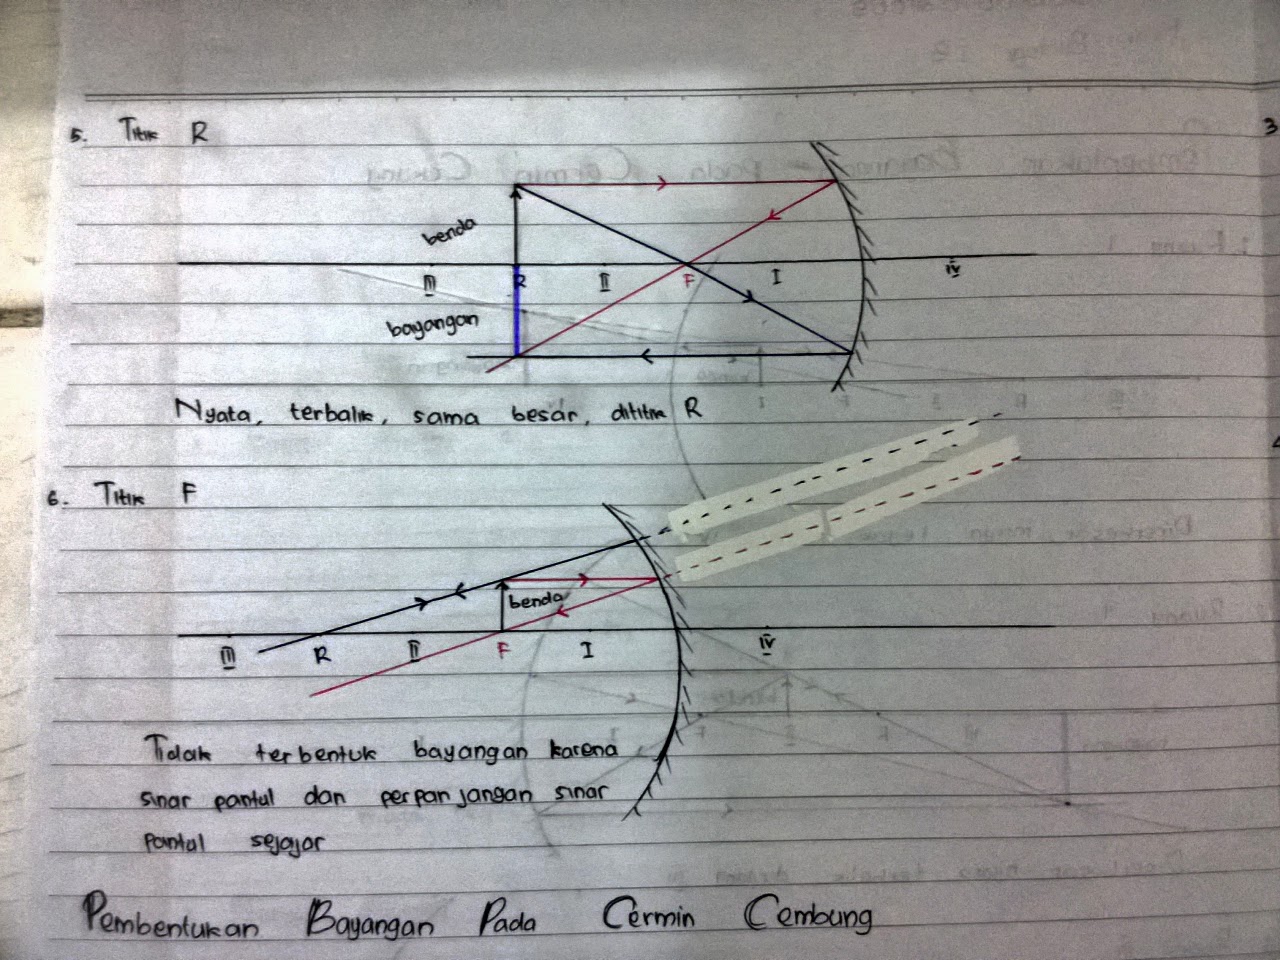 3
5. Titik R
benda
III R II F I IV
bayangan
Nyata, terbalik, sama besar, dititik R
6. Titik F
benda
III R II F I IV
Tidak terbentuk bayangan karena
sinar pantul dan perpanjangan sinar
pantul sejajar
Pembentukan Bayangan Pada Cermin Cembung